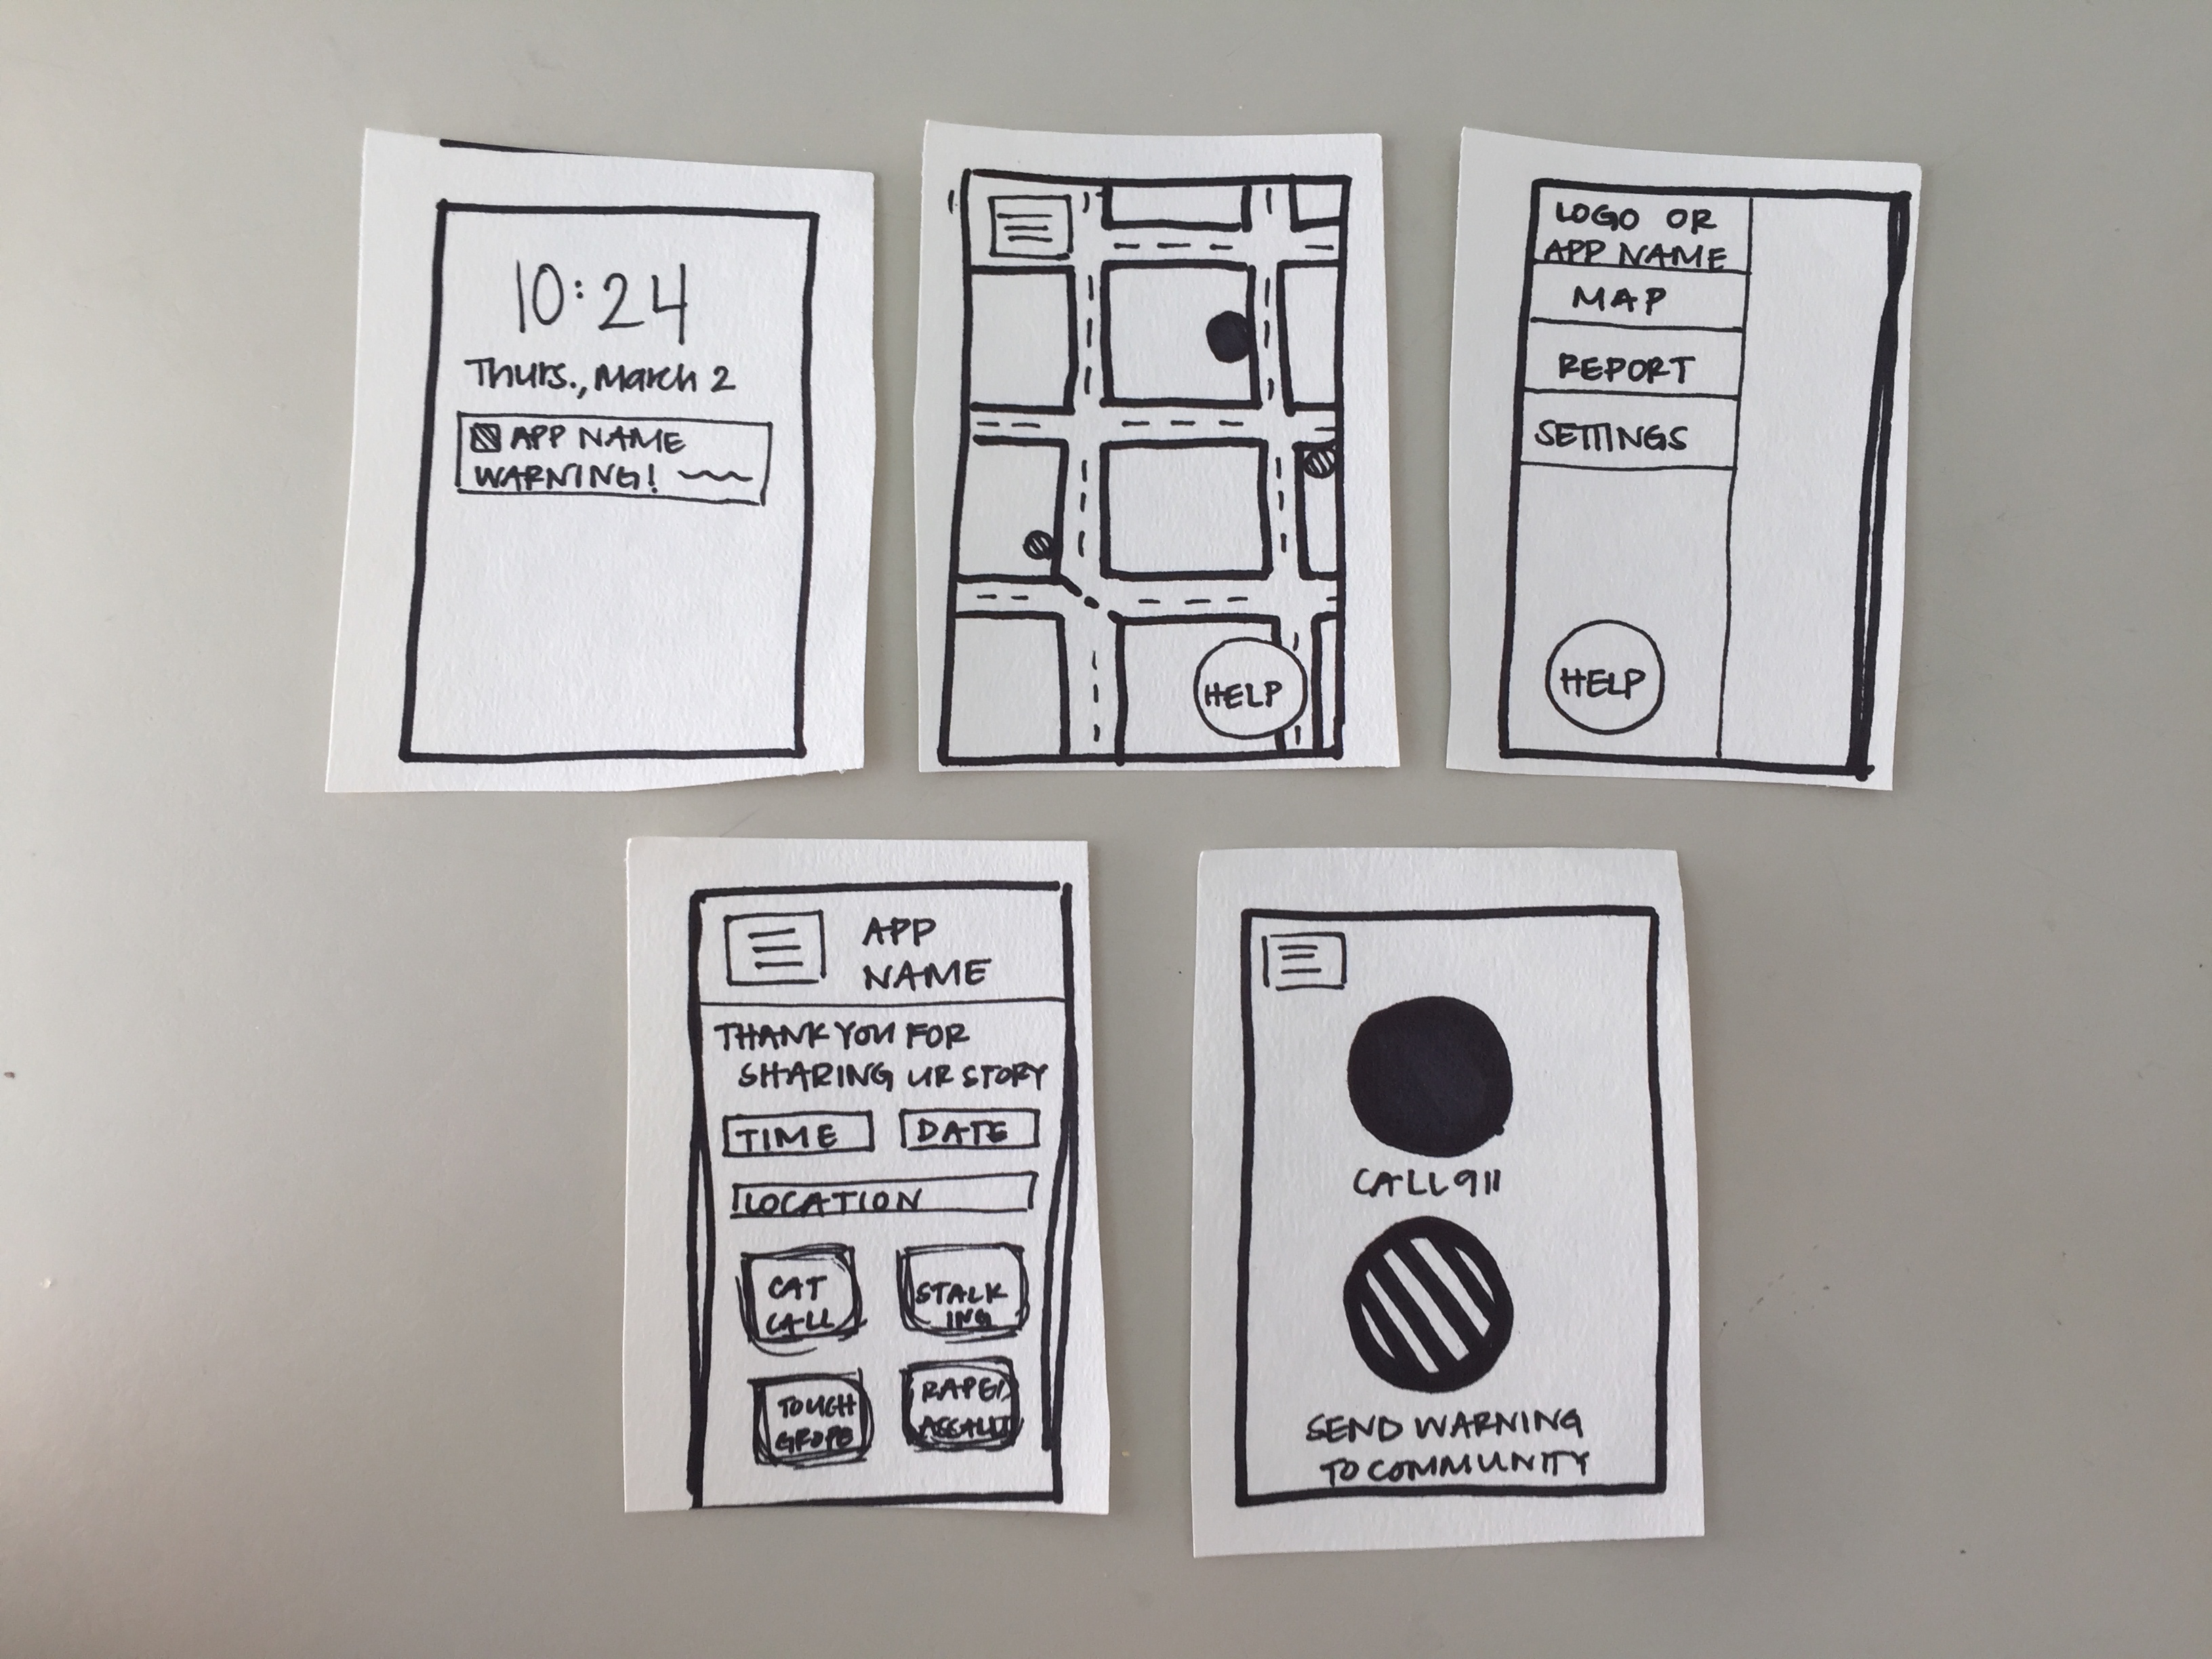 10:24
Thurs., March 2
APP NAME
WARNING!
HELP
LOGO OR
APP NAME
MAP
REPORT
SETTINGS
HELP
APP
NAME
THANK YOU FOR
SHARING UR STORY
TIME
DATE
LOCATION
CAT
CALL
STALK
ING
TOUCH
GROPE
RAPE/
ASSAULT
CALL 911
SEND WARNING
TO COMMUNITY